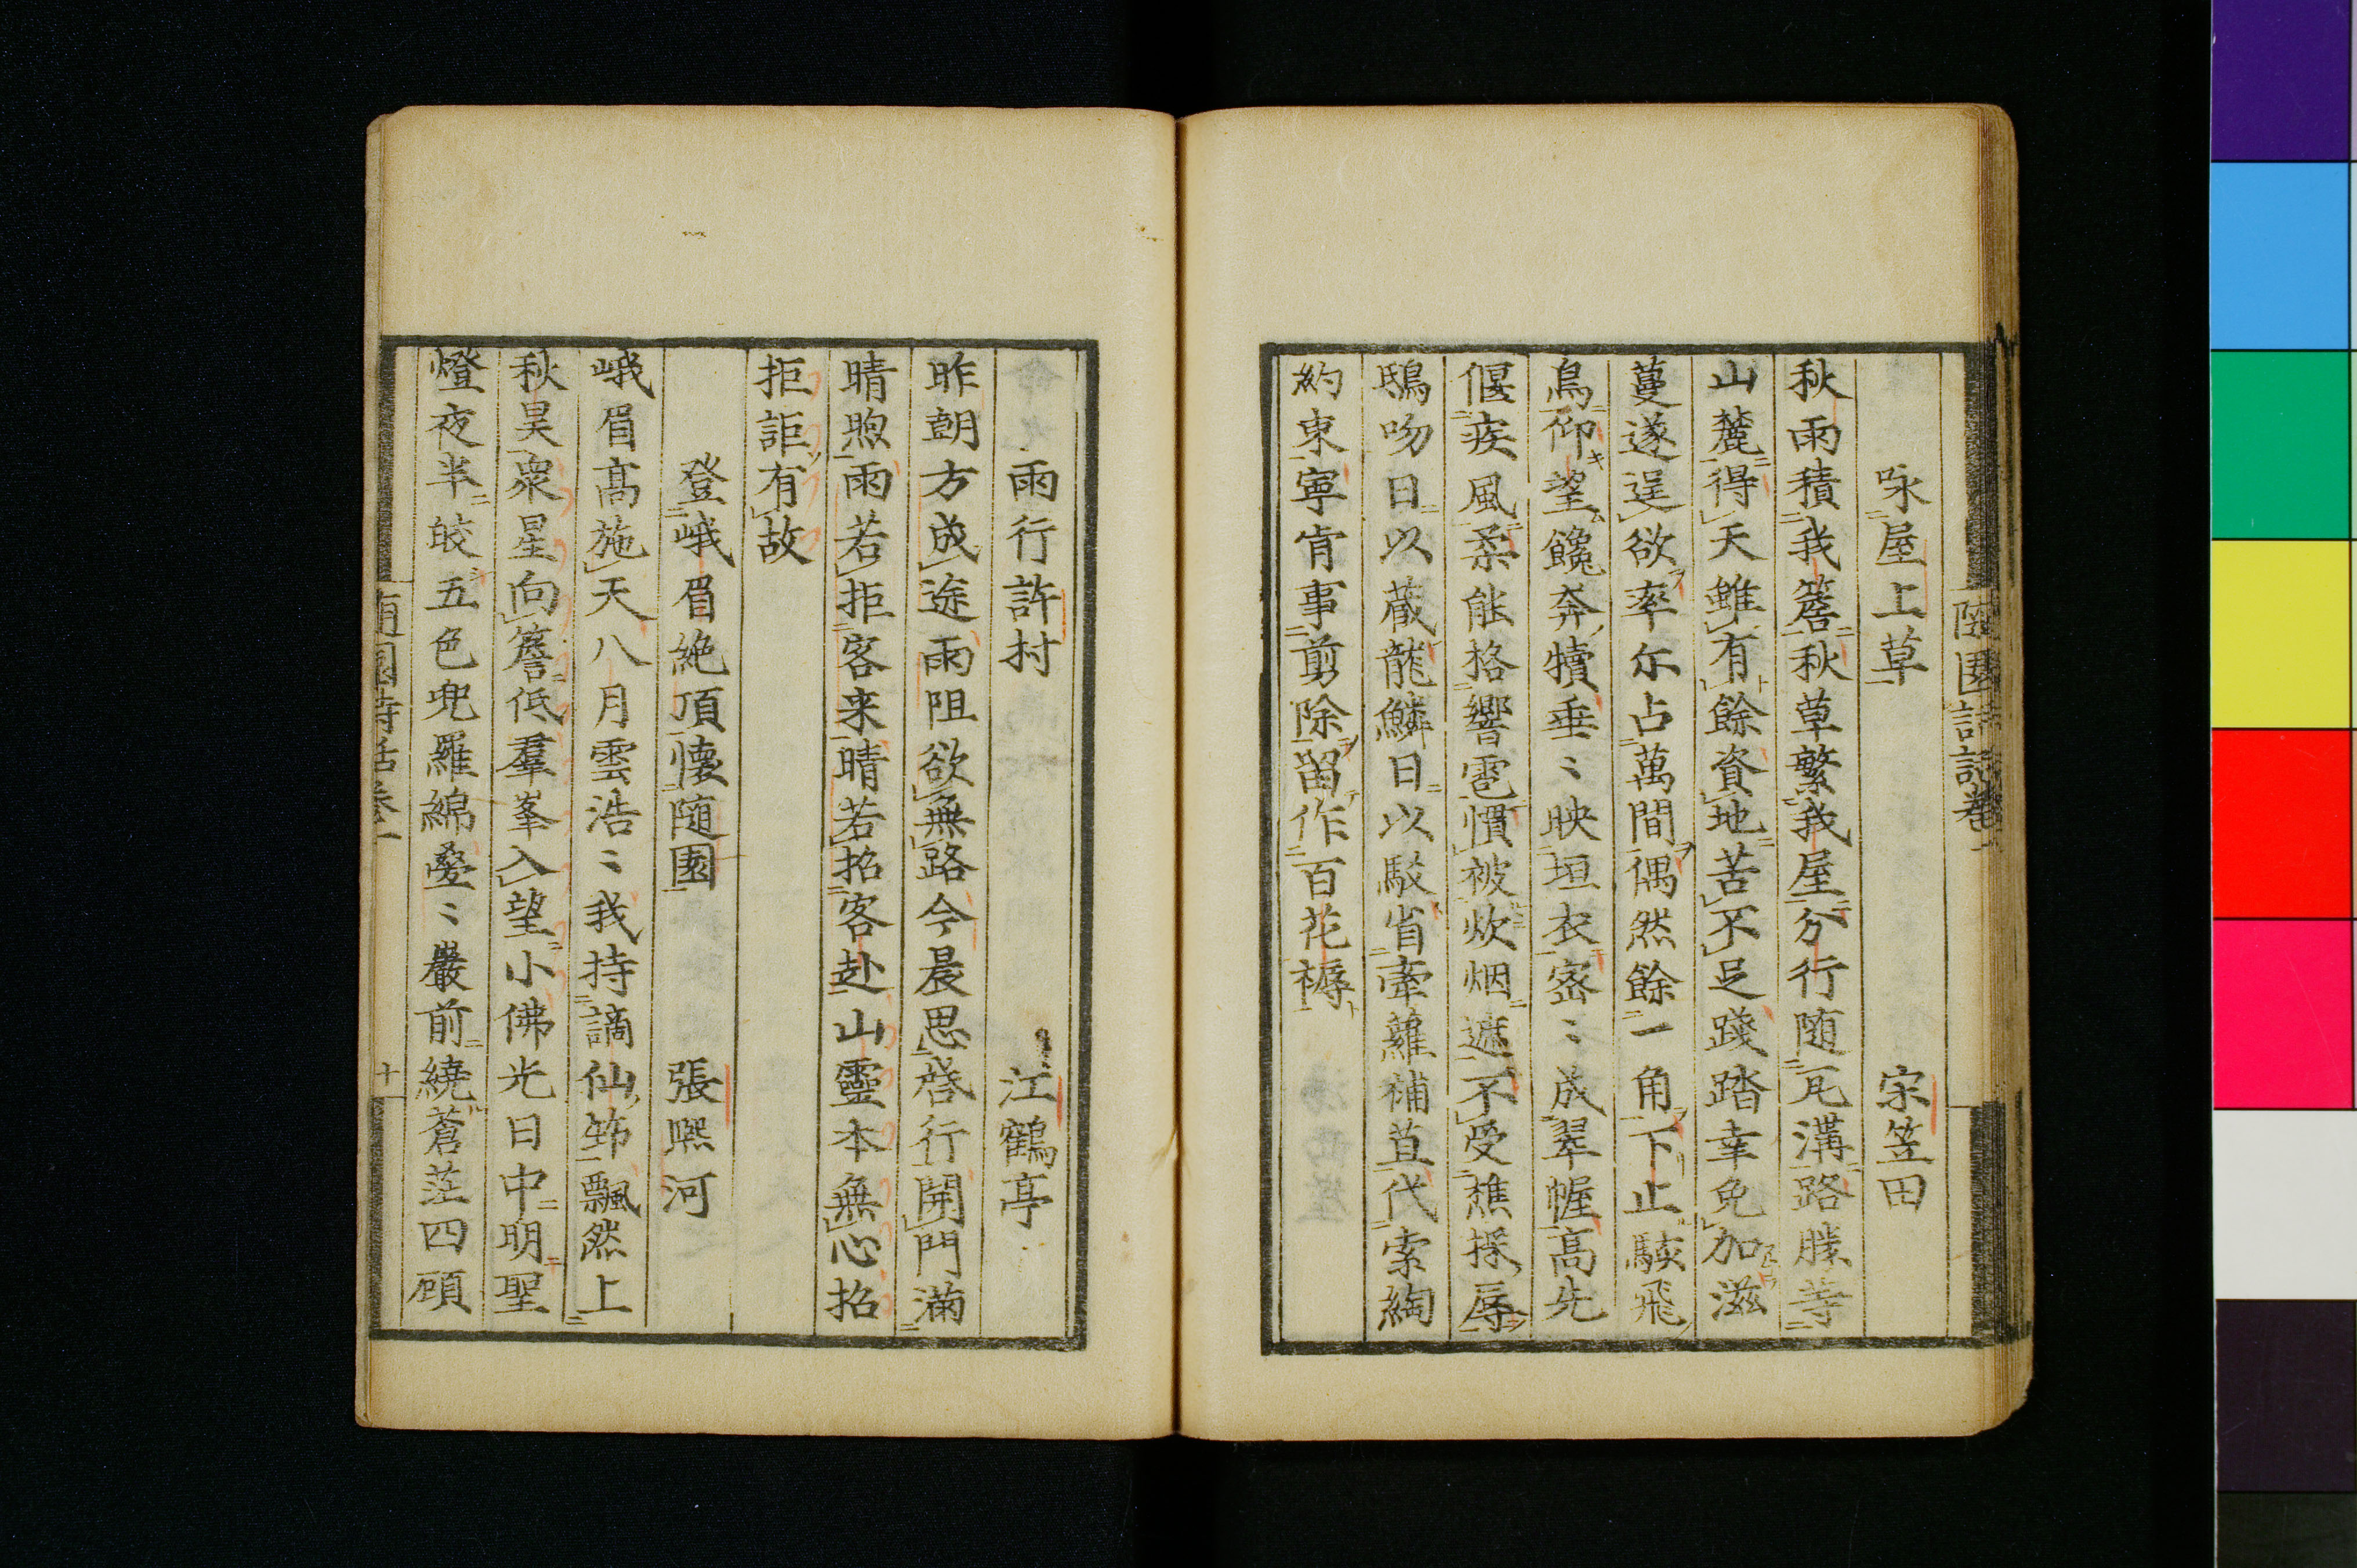 隨園詩話卷一
咏屋上草 宋笠田
秋雨積我簷秋草繁我屋分行随瓦溝路勝等
山麓得天雖有餘資地苦不足踐踏幸免加滋
蔓遂逞欲率尓占萬間偶然餘一角下止駭飛
鳥仰望饞奔犢垂〻映垣衣密〻成翠幄高先
偃疾風柔能格響雹慣被炊烟遮不受樵採辱
鴟吻日以蔵龍鱗日以駁省牽蘿補苴代索綯
約束寧肯事剪除留作百花褥
雨行許村 江鶴亭
昨朝方成途雨阻欲無路今晨思啓行開門滿
晴煦雨若拒客来晴若招客赴山靈本無心招
拒詎有故
登峨眉絶頂懐随園 張熈河
峨眉高施天八月雲浩〻我持謫仙笻飄然上
秋昊衆星向簷低羣峯入望小佛光日中明聖
燈夜半皎五色兜羅綿疊〻巖前繞蒼茫四頋
隨園詩話卷一
十